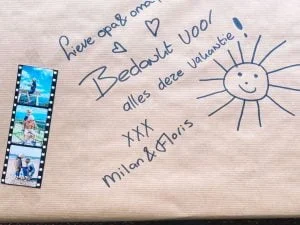 Lieve opa & oma,
Bedankt voor
alles deze vakantie!
XXX
Milan & Floris